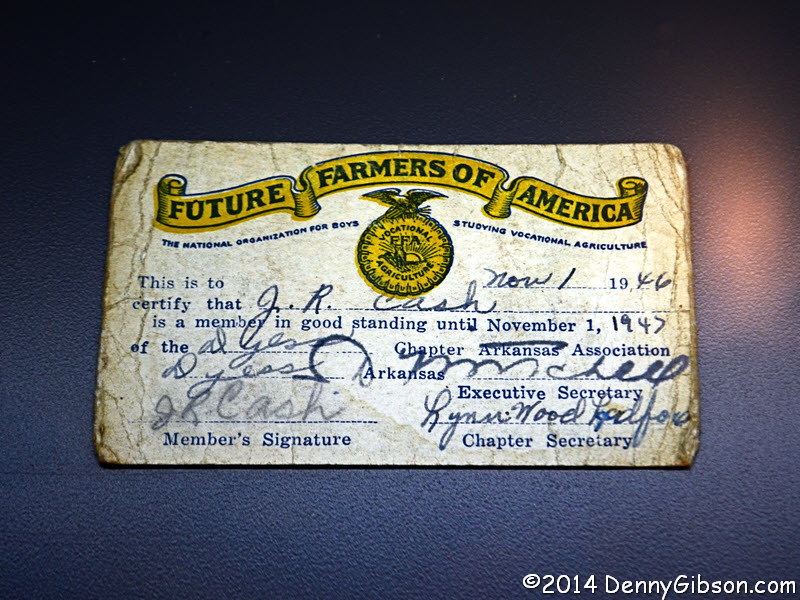 FUTURE FARMERS OF AMERICA
THE NATIONAL ORGANIZATION FOR BOYS STUDYING VOCATIONAL AGRICULTURE
VOCATIONAL
FFA
AGRICULTURE
This is to Nov 1 1946
certify that J. R. Cash
is a member in good standing until November 1, 1947
of the Dyess Chapter Arkansas Association
Dyess Arkansas
Executive Secretary
JR Cash Lynn Wood
Member's Signature Chapter Secretary
©2014 DennyGibson.com